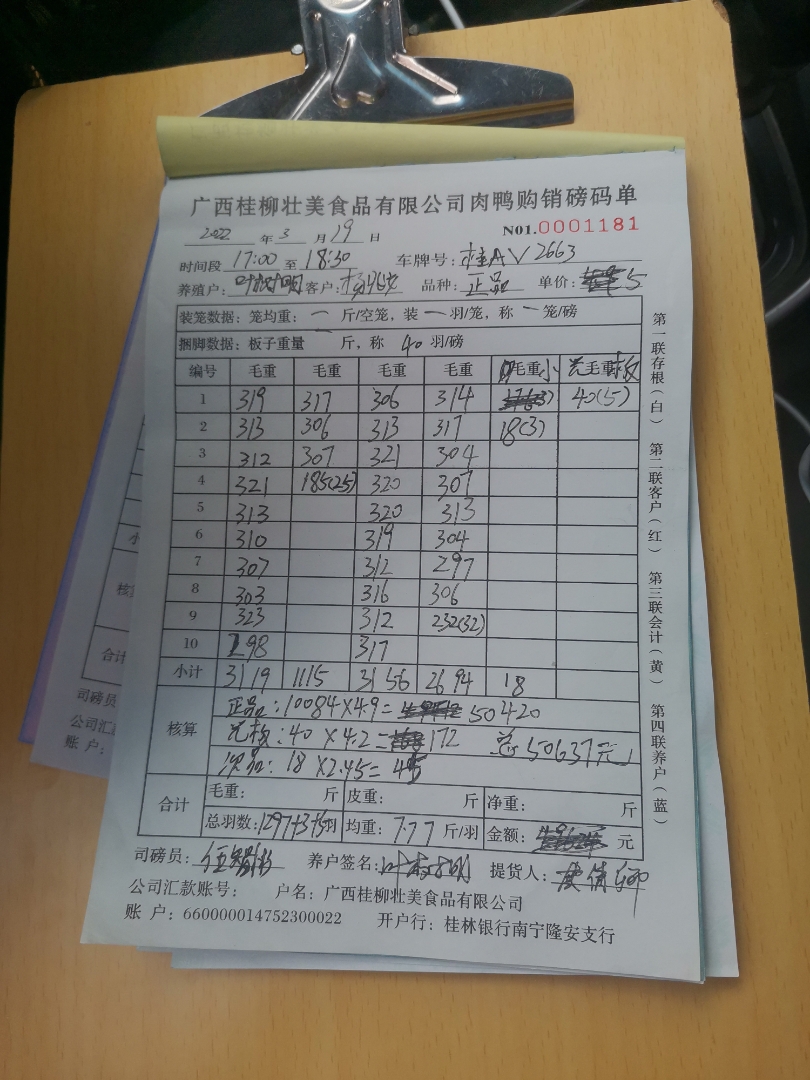 广西桂柳壮美食品有限公司肉鸭购销磅码单
2022 年 3 月 19 日 N01.0001181
时间段 17:00 至 18:30 车牌号: 桂AV2663
养殖户: 叶树明 客户: 品种: 正品 单价: 5
装笼数据: 笼均重: 一 斤/空笼, 装 一 羽/笼, 称 一 笼/磅
捆脚数据: 板子重量 一 斤, 称 40 羽/磅
编号 毛重 毛重 毛重 毛重 毛重小 毛重
1 319 317 306 314 40(5)
2 313 306 313 317 18(3)
3 312 307 321 304
4 321 185(25) 320 307
5 313 320 313
6 310 319 304
7 307 312 297
8 303 316 306
9 323 312 232(32)
10 298 317
小计 3119 1115 3156 2694 18
核算
正品: 10084×4.9= 50420
40 ×4.2= 172 总50637元
次品: 18 ×2.45=
合计
毛重: 斤 皮重: 斤 净重: 斤
总羽数: 1297+3+5羽 均重: 7.77 斤/羽 金额: 元
司磅员: 养户签名: 叶树明 提货人:
公司汇款账号: 户名: 广西桂柳壮美食品有限公司
账 户: 660000014752300022 开户行: 桂林银行南宁隆安支行
第一联存根(白) 第二联客户(红) 第三联会计(黄) 第四联养户(蓝)